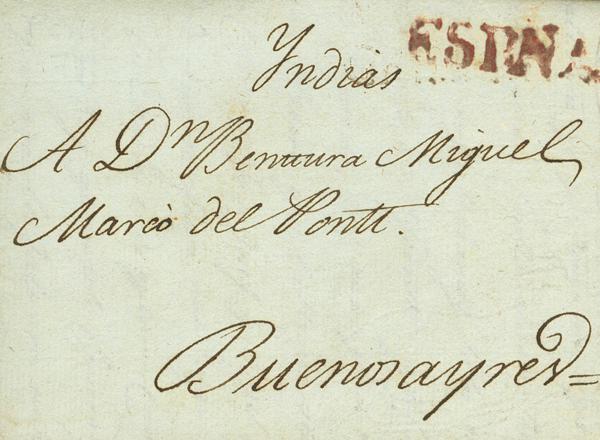 Yndias
ESPNA
A Dn Benttura Miguel
Marcò del Pontt.
Buenosayres=